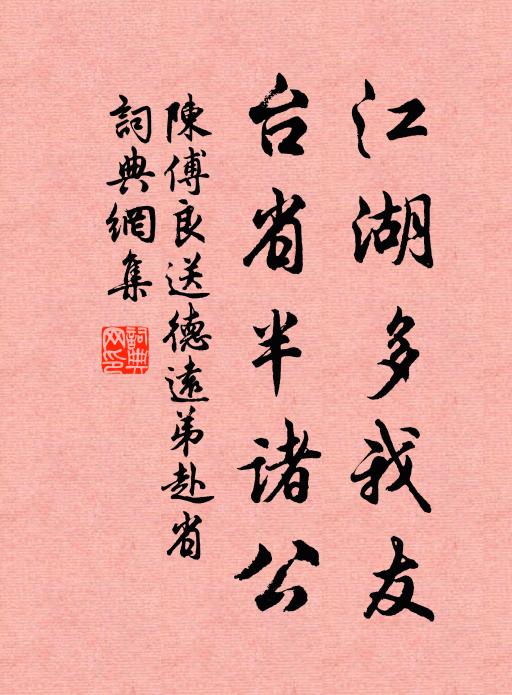 江湖多我友
台省半諸公
陳傅良送德遠弟赴省
詞典網集
詞典
网印